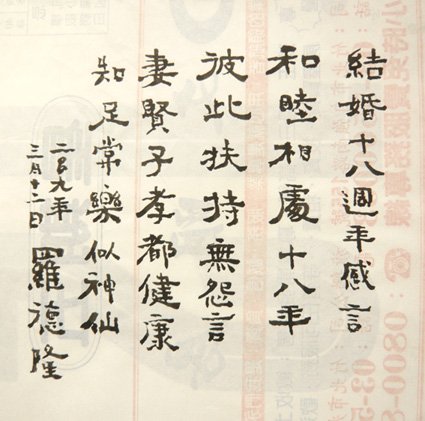 結婚十八週年感言
和睦相處十八年
彼此扶持無怨言
妻賢子孝都健康
知足常樂似神仙
二〇〇九年
三月十二日
羅德隆